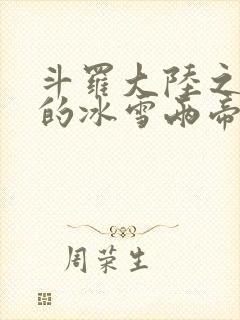 斗羅大陸之
的冰雪兩帝
周荣生